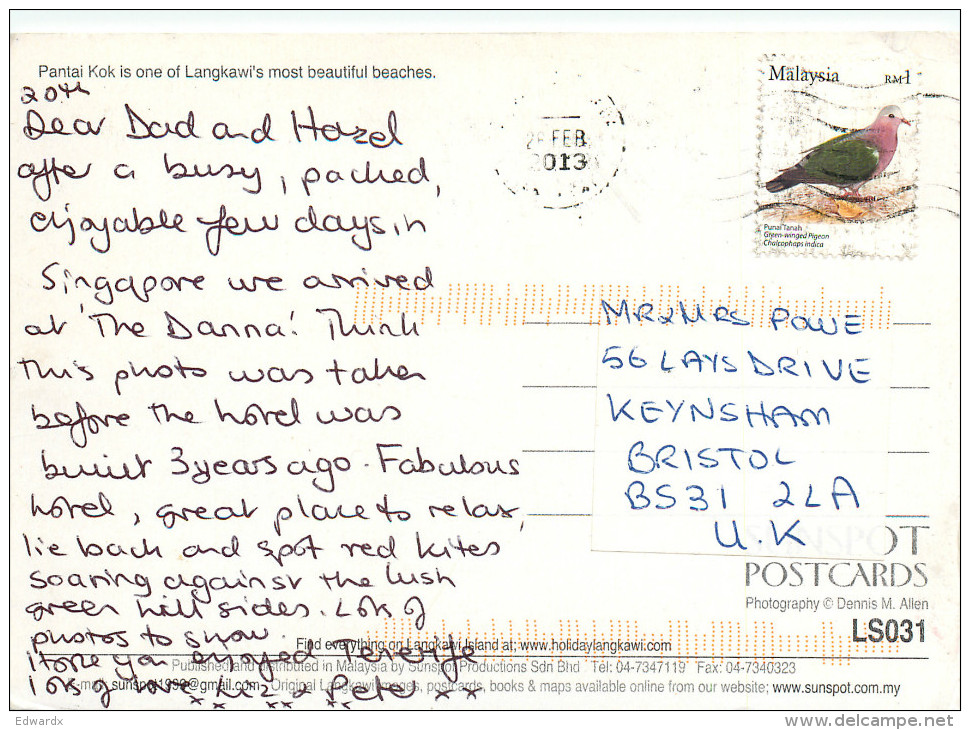 Pantai Kok is one of Langkawi's most beautiful beaches.
20th
Dear Dad and Hazel
after a busy, packed,
enjoyable few days in
Singapore we arrived
at 'The Danna'. Think
this photo was taken
before the hotel was
built 3 years ago. Fabulous
hotel, great place to relax,
lie back and spot red kites
soaring against the lush
green hill sides. Lots of
photos to show.
Hope you enjoyed Tenerife
lots of love
Peter x x
FEB
2013
Malaysia RM1
Punai Tanah
Green-winged Pigeon
Chalcophaps indica
MR & MRS POWE
56 LAYS DRIVE
KEYNSHAM
BRISTOL
BS31 2LA
U.K
SUNSPOT
POSTCARDS
Photography © Dennis M. Allen
LS031
Find everything on Langkawi Island at: www.holidaylangkawi.com
Published and distributed in Malaysia by Sunspot Productions Sdn Bhd Tel: 04-7347119 Fax: 04-7340323
e-mail: sunspot1999@gmail.com Original Langkawi images, postcards, books & maps available online from our website: www.sunspot.com.my
Edwardx
www.delcampe.net